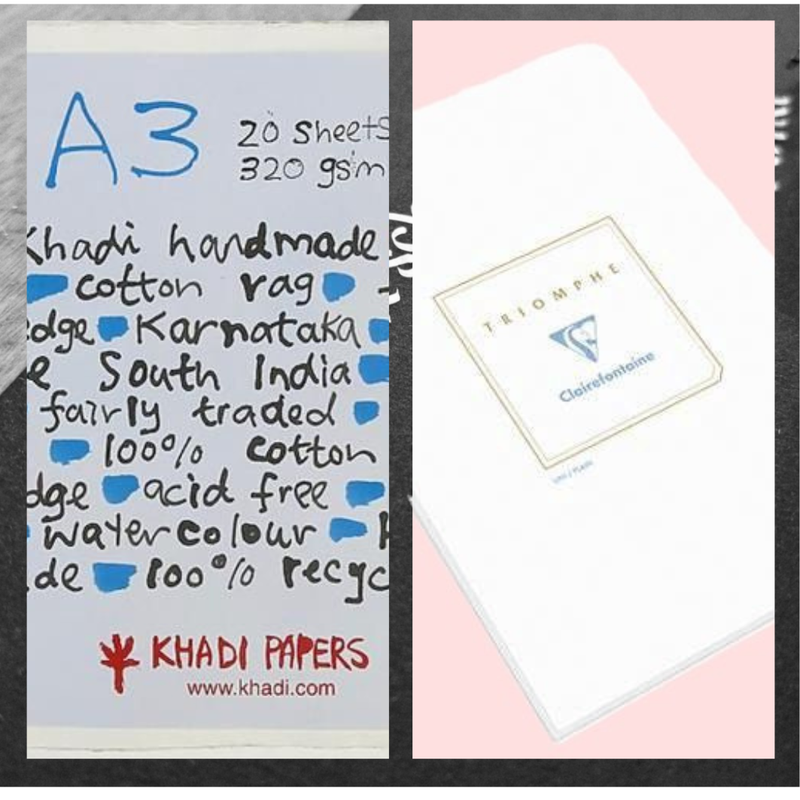 A3
20 sheets
320 gsm
Khadi handmade
cotton rag
edge Karnataka
South India
fairly traded
100% cotton
acid free
watercolour
100% recyc
KHADI PAPERS
www.khadi.com
TRIOMPHE
Clairefontaine
UNI / PLAIN